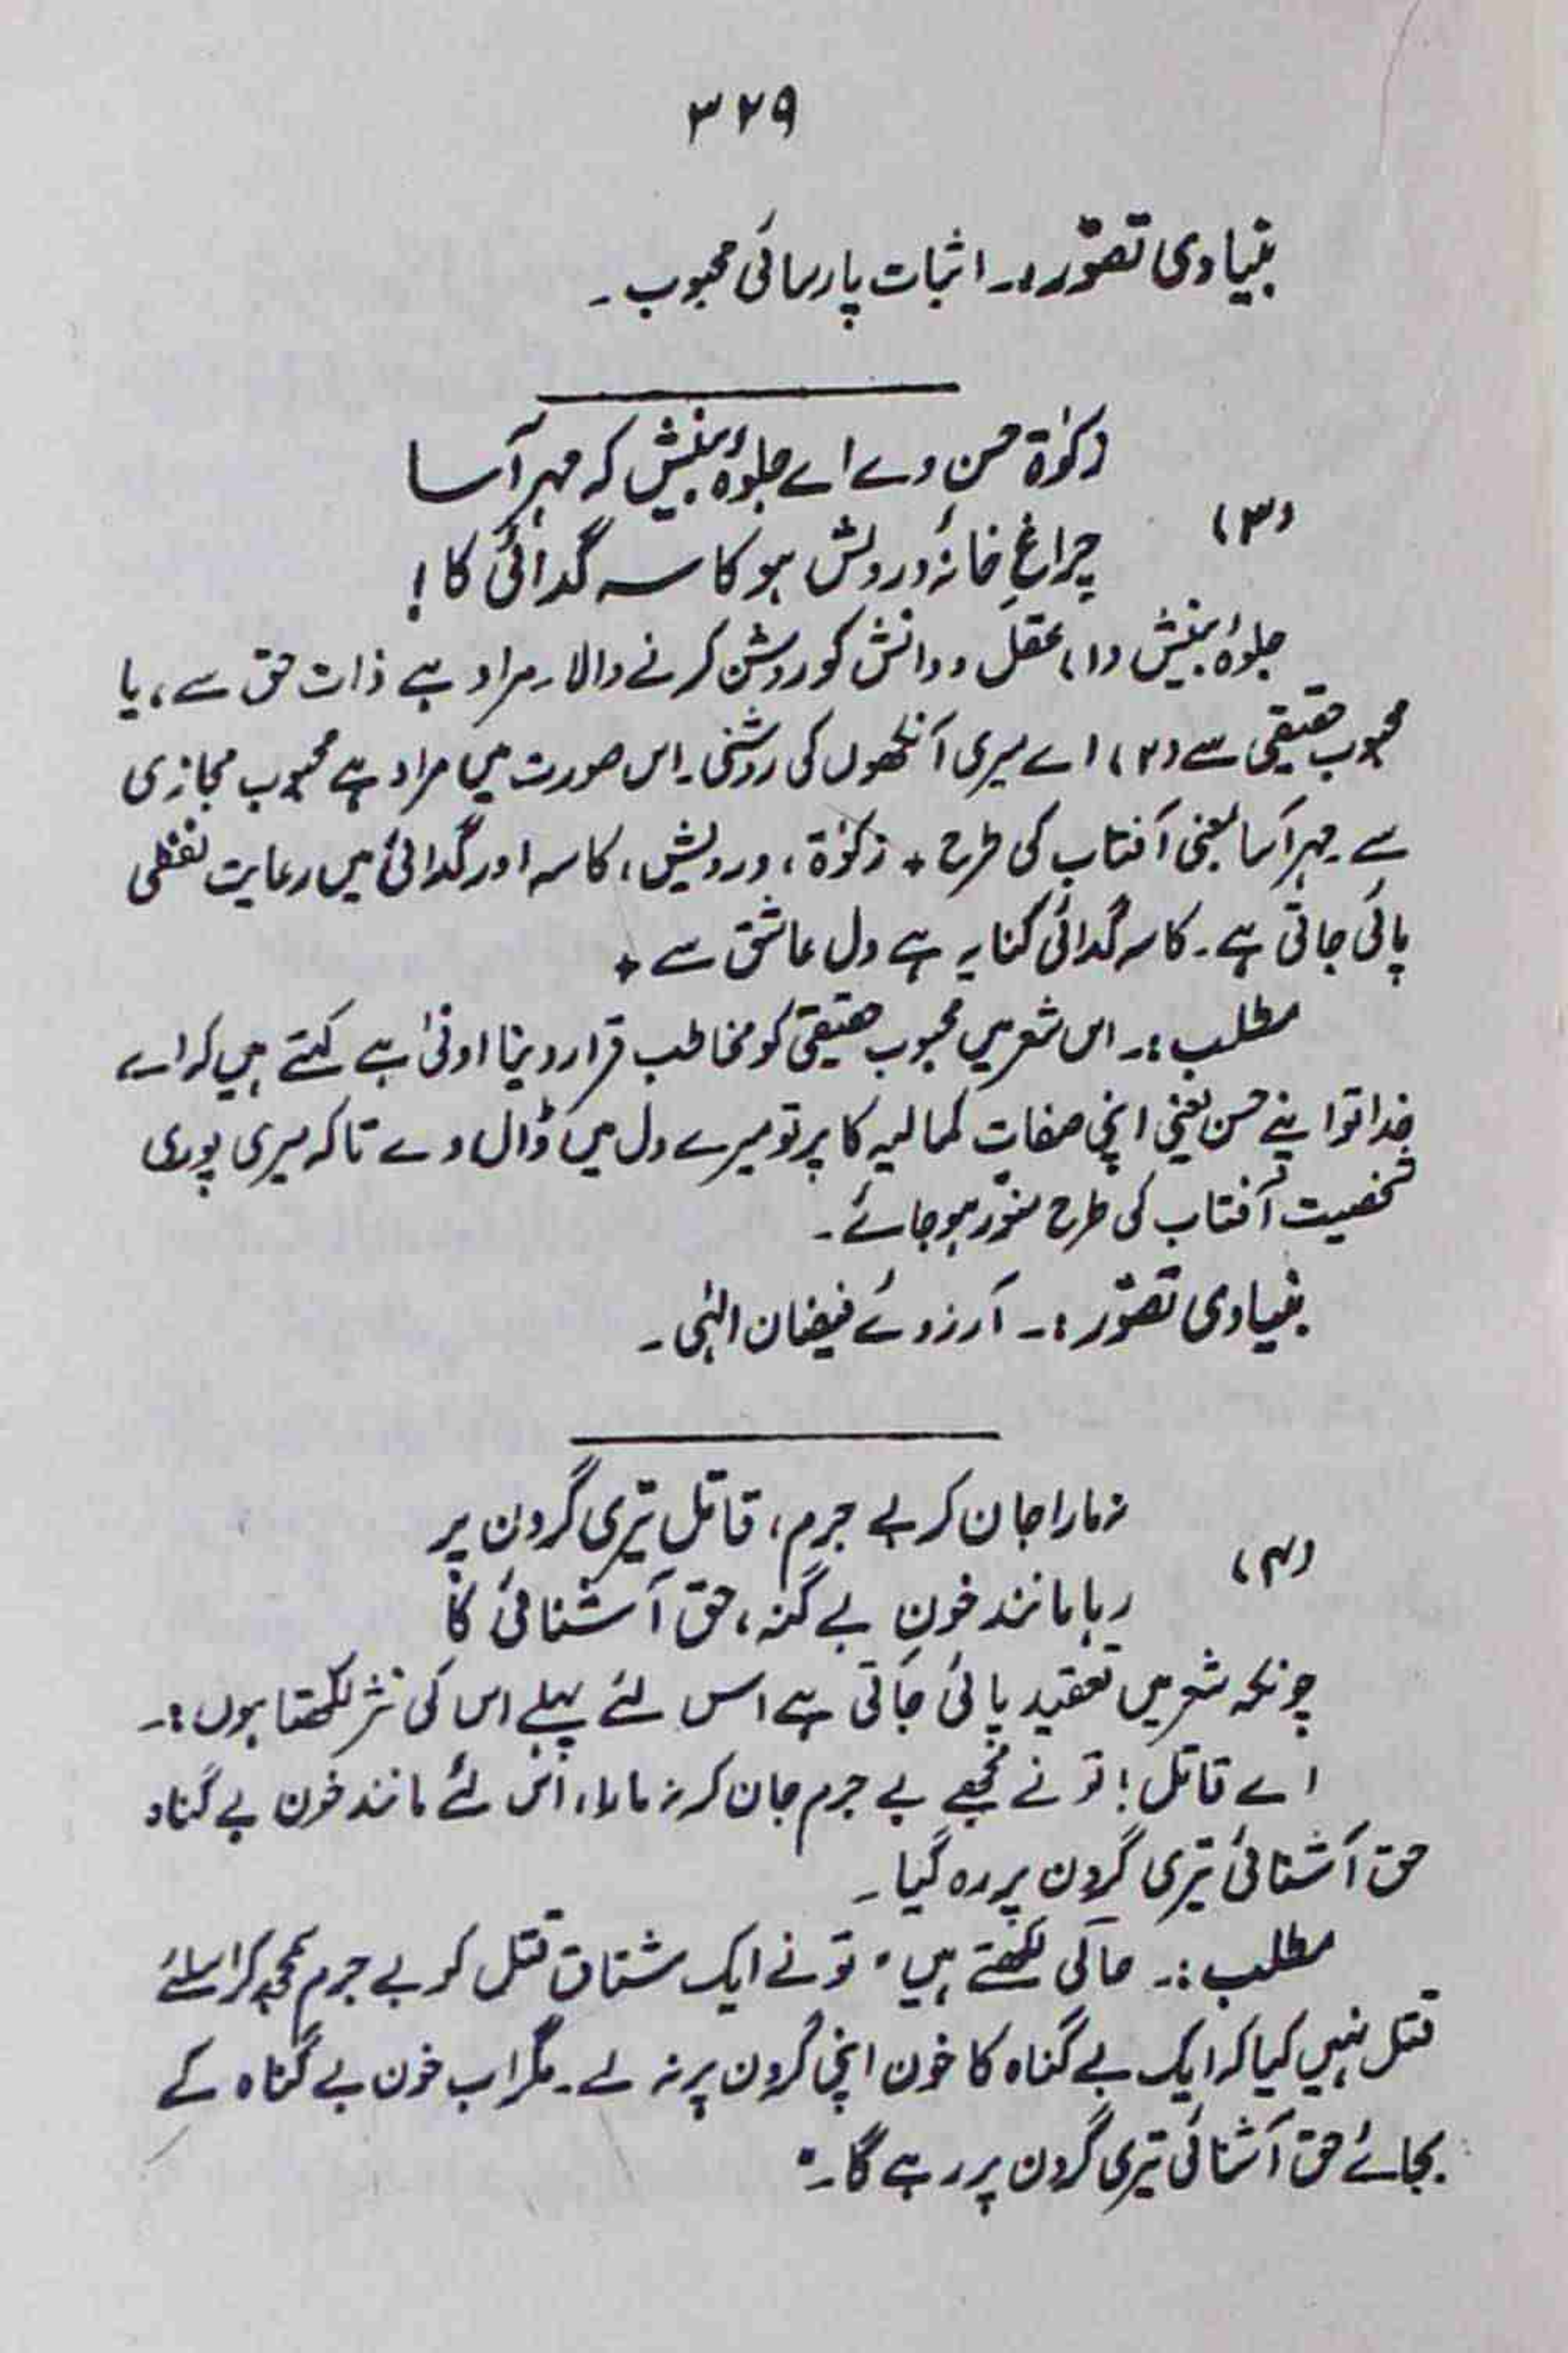 ۳۲۹
بنیادی تصوّر:۔ اثبات پارسائی محبوب۔
زکوٰۃ حسن دے اے جلوۂ بینش کہ مہر آسا
(۳)
چراغِ خانۂ درویش ہو کاسہ گدائی کا!
جلوۂ بینش (۱) عقل و دانش کو روشن کرنے والا۔ مراد ہے ذات حق سے، یا
محبوب حقیقی سے (۲) اے میری آنکھوں کی روشنی۔ اس صورت میں مراد ہے محبوب مجازی
سے۔ مہر آسا یعنی آفتاب کی طرح + زکوٰۃ، درویش، کاسہ اور گدائی میں رعایت لفظی
پائی جاتی ہے۔ کاسہ گدائی کنایہ ہے دل عاشق سے +
مطلب:۔ اس شعر میں محبوب حقیقی کو مخاطب قرار دینا اولیٰ ہے کہتے ہیں کہ اے
خدا تو اپنے حسن یعنی اپنی صفاتِ کمالیہ کا پرتو میرے دل میں ڈال دے تاکہ میری پوری
شخصیت آفتاب کی طرح منوّر ہو جائے۔
بنیادی تصوّر:۔ آرزوئے فیضان الٰہی۔
نہ مارا جان کر بے جرم، قاتل تیری گردن پر
(۴)
رہا مانند خونِ بے گنہ، حق آشنائی کا
چونکہ شعر میں تعقید پائی جاتی ہے اس لئے پہلے اس کی نثر لکھتا ہوں:۔
اے قاتل! تو نے مجھے بے جرم جان کر نہ مارا، اس لئے مانند خون بے گناہ
حق آشنائی تیری گردن پر رہ گیا۔
مطلب:۔ حالی لکھتے ہیں "تو نے ایک مشتاق قتل کو بے جرم سمجھ کر اسلئے
قتل نہیں کیا کہ ایک بے گناہ کا خون اپنی گردن پر نہ لے۔ مگر اب خون بے گناہ کے
بجائے حق آشنائی تیری گردن پر رہے گا۔"